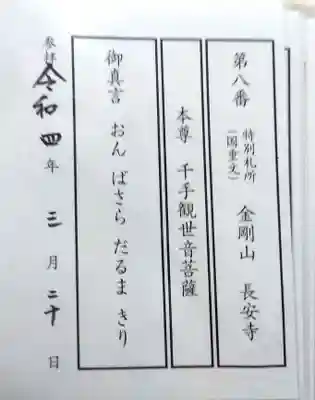 第八番 特別札所 (国重文) 金剛山 長安寺
本尊 千手観世音菩薩
御真言 おん ばさら だるま きり
参拝 令和四年 三月二十日